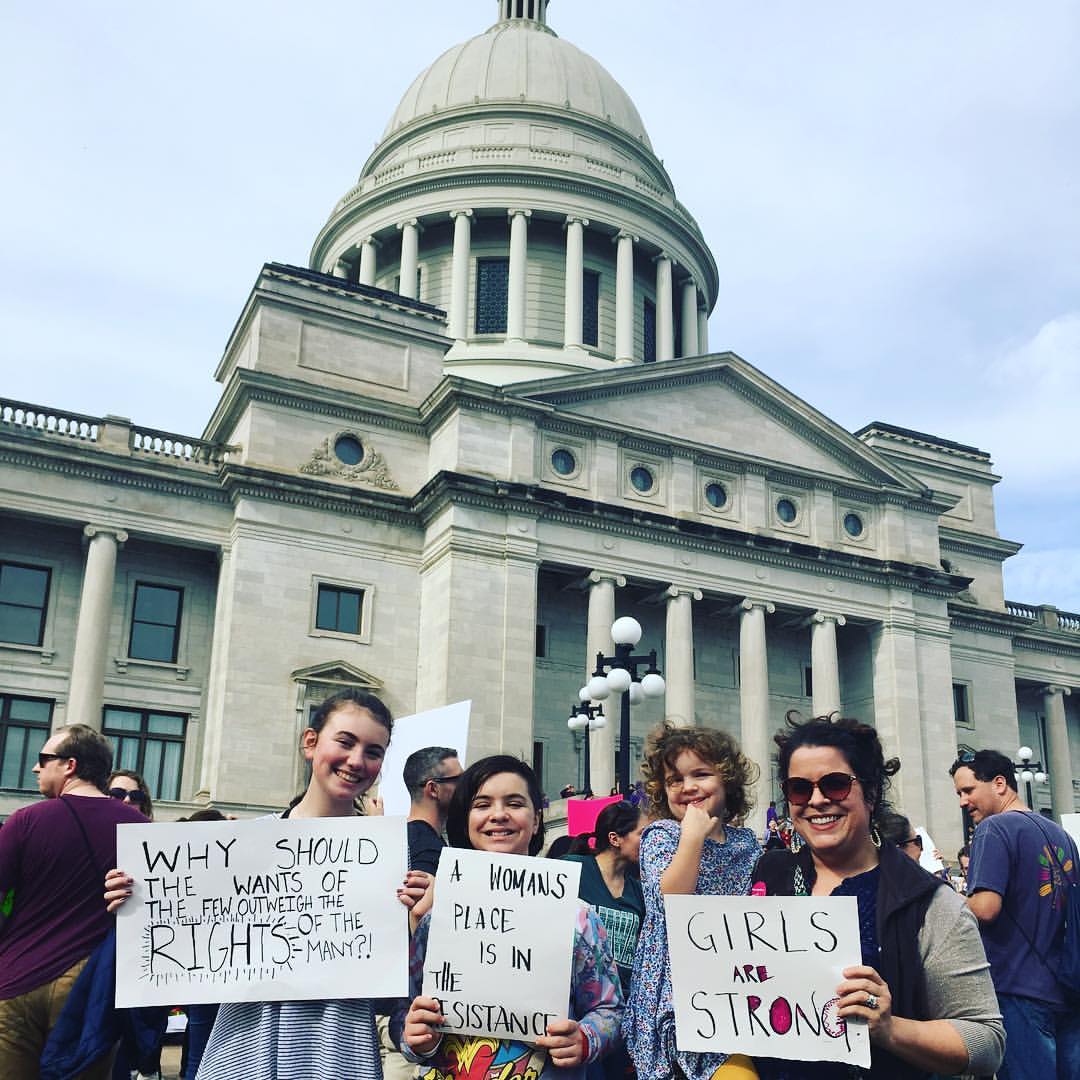 WHY SHOULD
THE WANTS OF
THE FEW OUTWEIGH THE
RIGHTS OF THE
MANY?!
A WOMANS
PLACE
IS IN
THE
RESISTANCE
GIRLS
ARE
STRONG